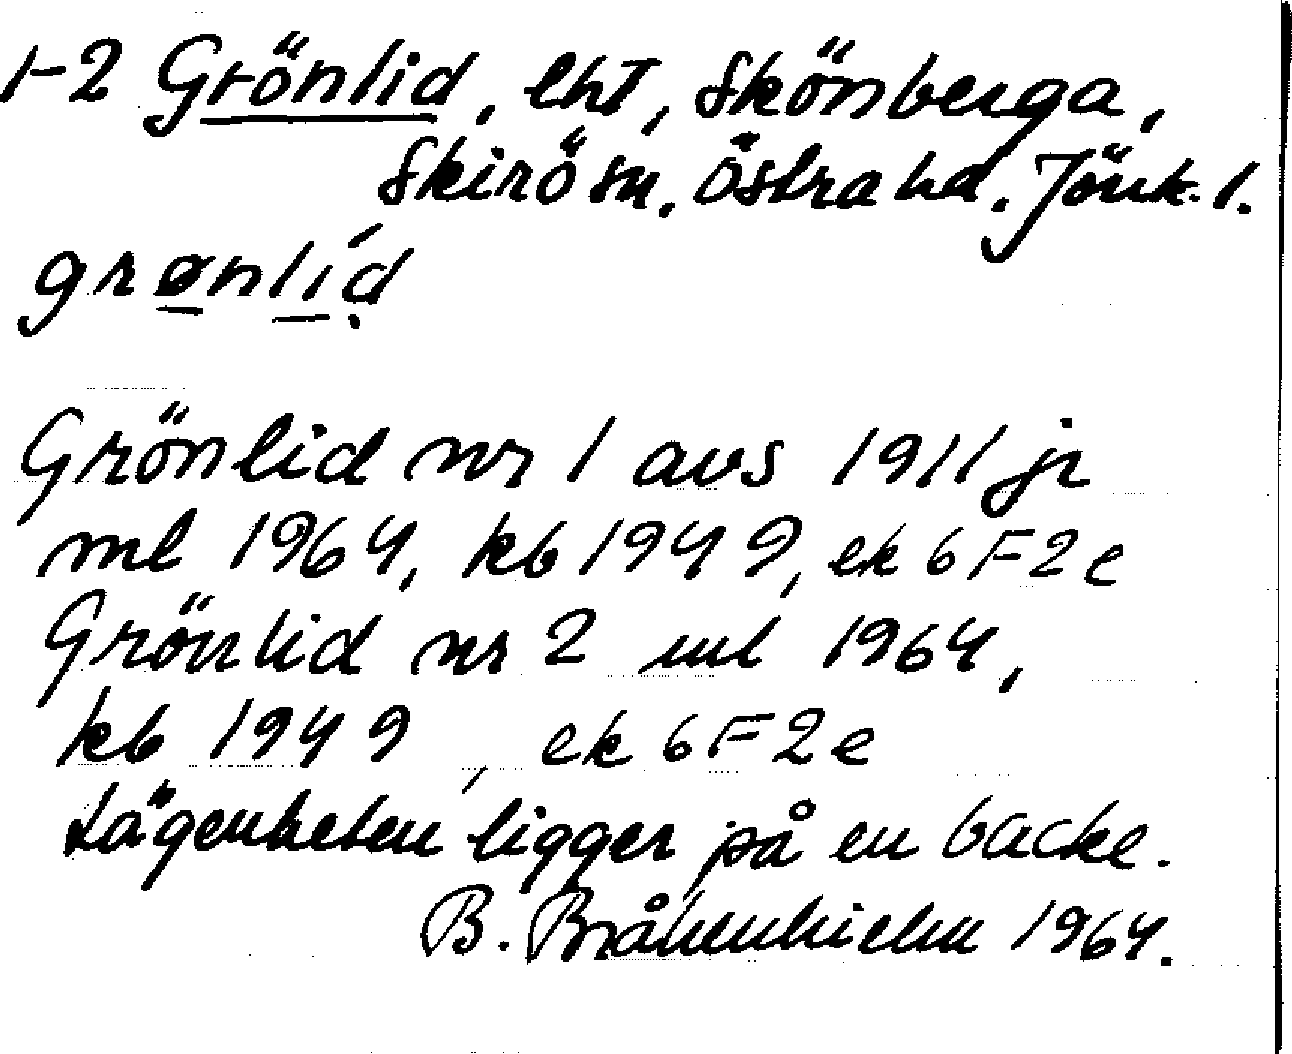 1-2 Grönlid, lht, Skönberga,
Skirö sn, Östra hd. Jönk. l.
grønlíd
Grönlid nr 1 avs 1911 jr
ml 1964, kb 1949, ek 6F2e
Grönlid nr 2 ml 1964,
kb 1949, ek 6F2e
Lägenheten ligger på en backe.
B. Bråkenhielm 1964.